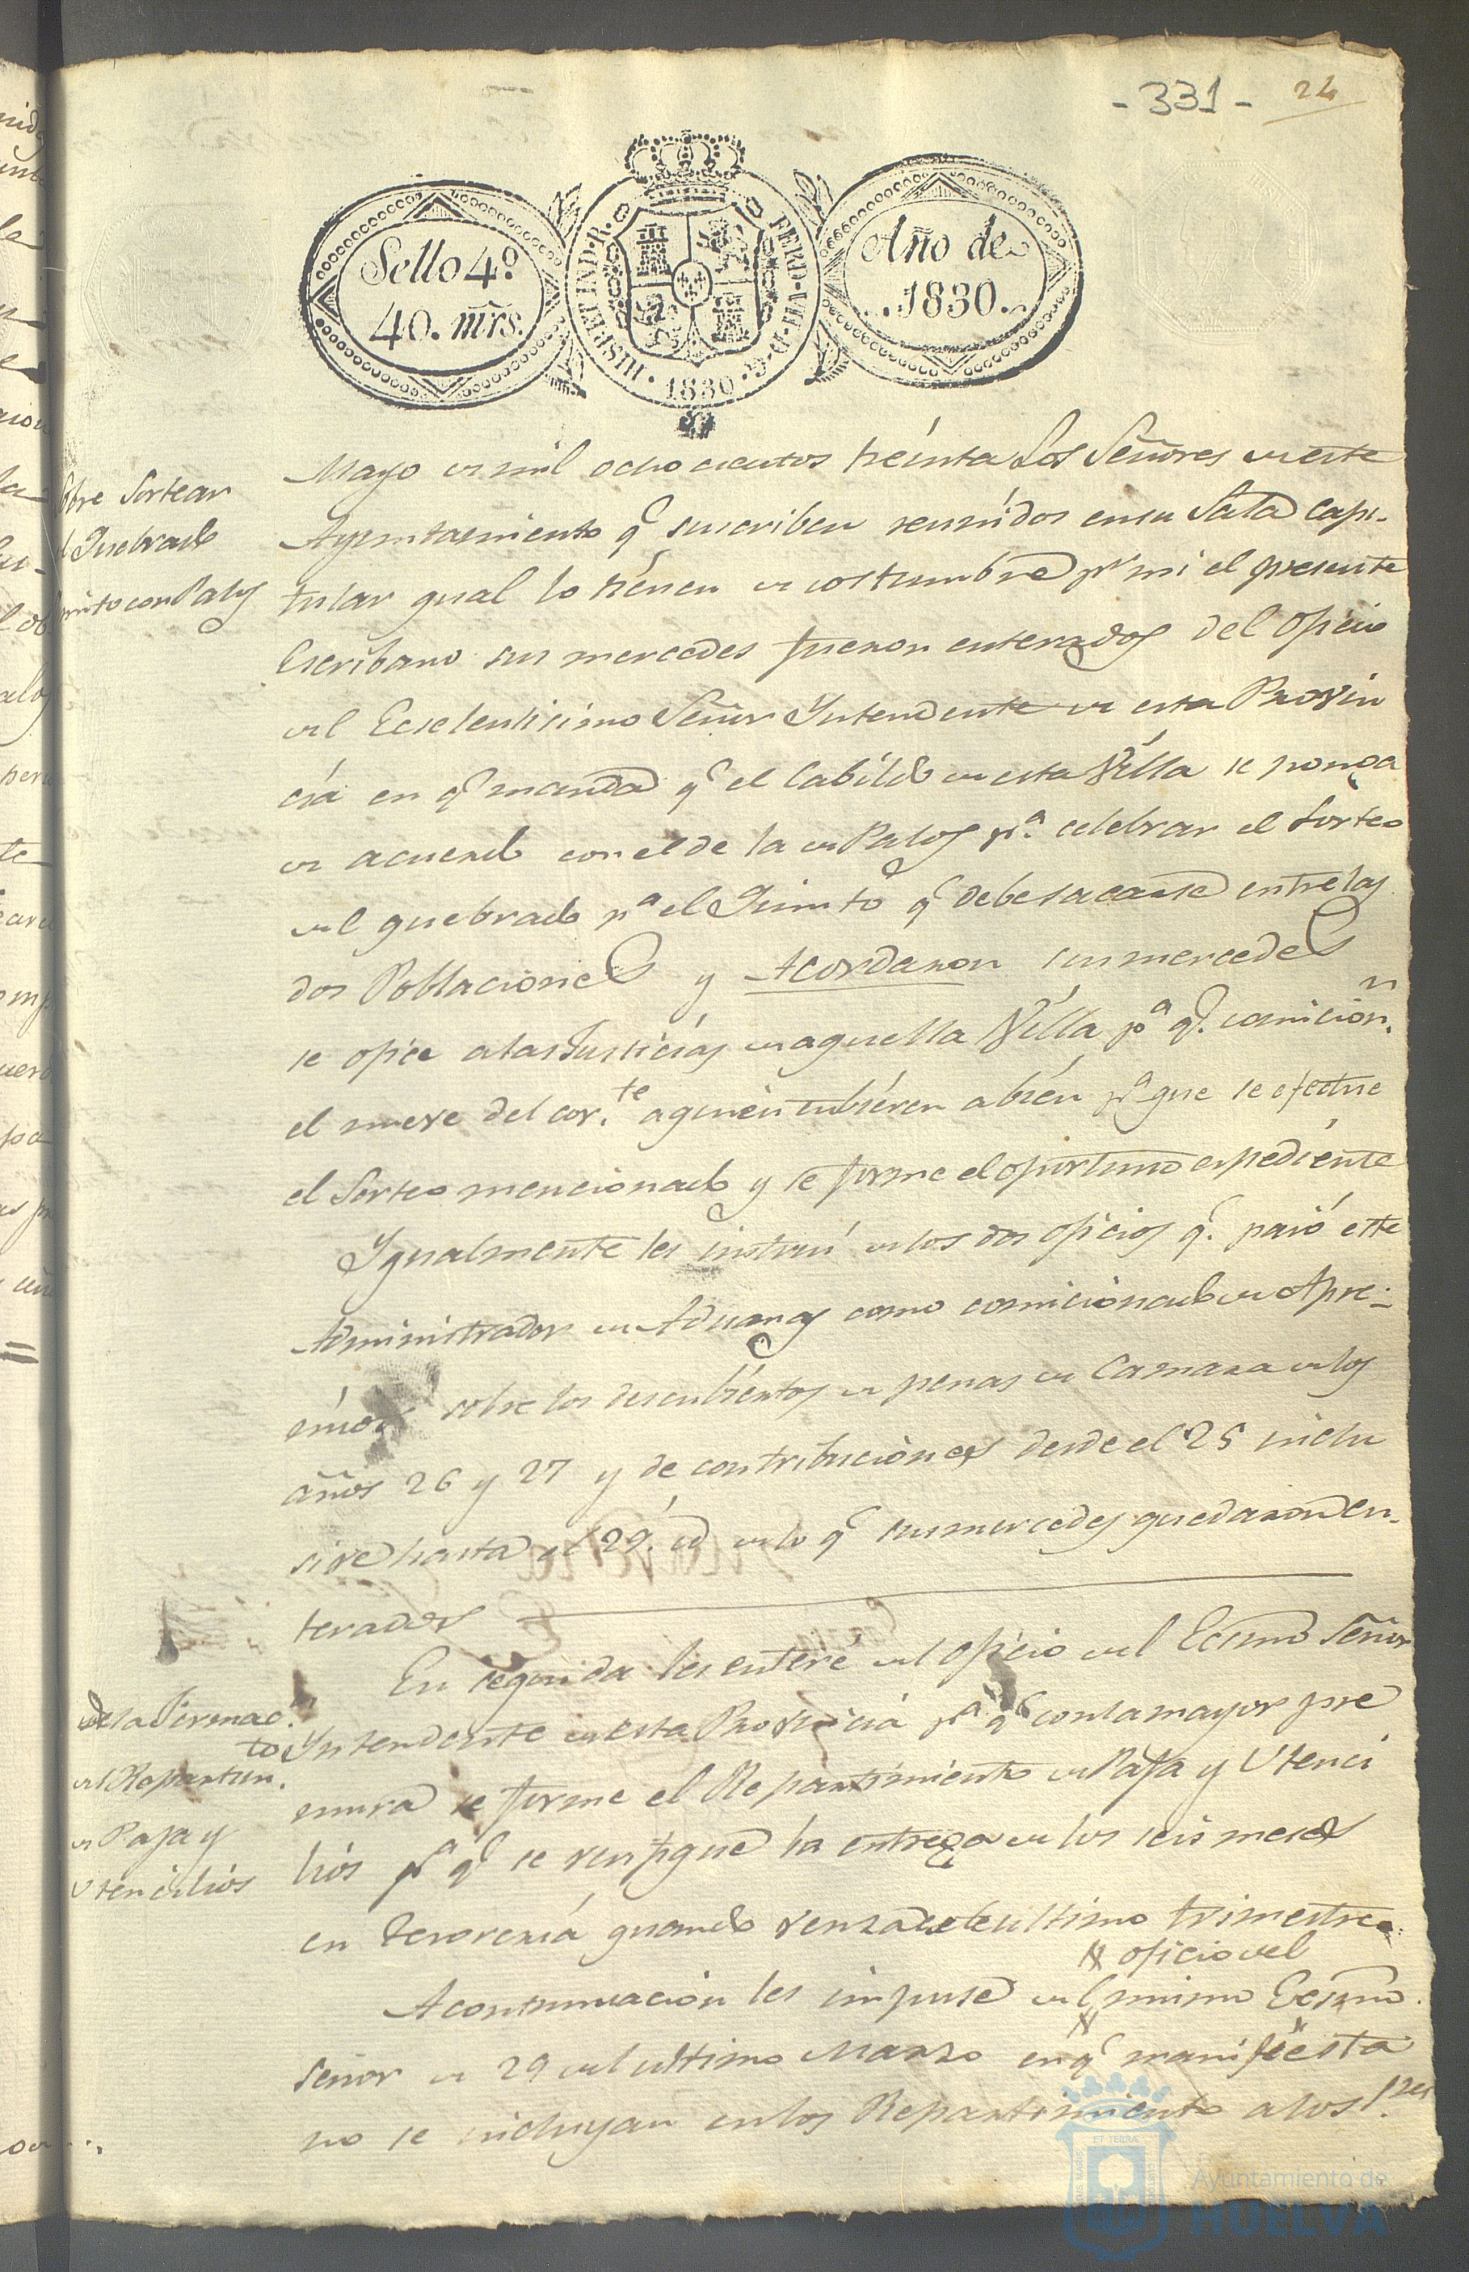 - 331 -
24
Sello 4º
40. mrs.
HISP. ET IND. R. FERD. VII. D. G. 1830
Año de
1830.
Mayo de mil ochocientos treinta Los Señores de este
obre Sortear
l Quebrado
uinto con Palos
Ayuntamiento q.e suscriben reunidos en su Sala Capi-
tular qual lo tienen de costumbre p.r mi el presente
Escribano sus mercedes fueron enterados del oficio
del Ecselentisimo Señor Yntendente de esta Provin
cia en q.e manda q.e el Cabildo de esta Villa se ponga
de acuerdo con el de la de Palos p.a celebrar el Sorteo
del quebrado p.a el Quinto q.e debe sacarse entre las
dos Poblaciones y Acordaron sus mercedes
se oficie a las Justicias de aquella Villa p.a q.e comicion.n
el nueve del cor.te a quien tubieren a bien p.a que se efectue
el Sorteo mencionado y se forme el oportuno espediente
Ygualmente les instruí de los dos oficios q.e pasó este
Administrador de Aduanas como comicionado de Apre-
mios sobre los descubiertos de penas de Camara de los
años 26 y 27 y de contribuciones desde el 25 inclu
sive hasta el 29. id de lo q.e sus mercedes quedaron en-
terados
En seguida les enteré del oficio del Ecsmo Señor
de la Formac.n
del Repartim.to
de Paja y
Utencilios
Yntendente de esta Provincia p.a q.e con la mayor pre
mura se forme el Repartimiento de Paja y Utenci
lios p.a q.e se verifique la entrega de los seis meses
en Tesoreria quando venza este ultimo trimestre.
oficio del
A continuacion les impuse del mismo Ecsmo.
Señor de 29 del ultimo Marzo en q.e manifiesta
no se incluyan en los Repartimiento a los
Ayuntamiento de
HUELVA